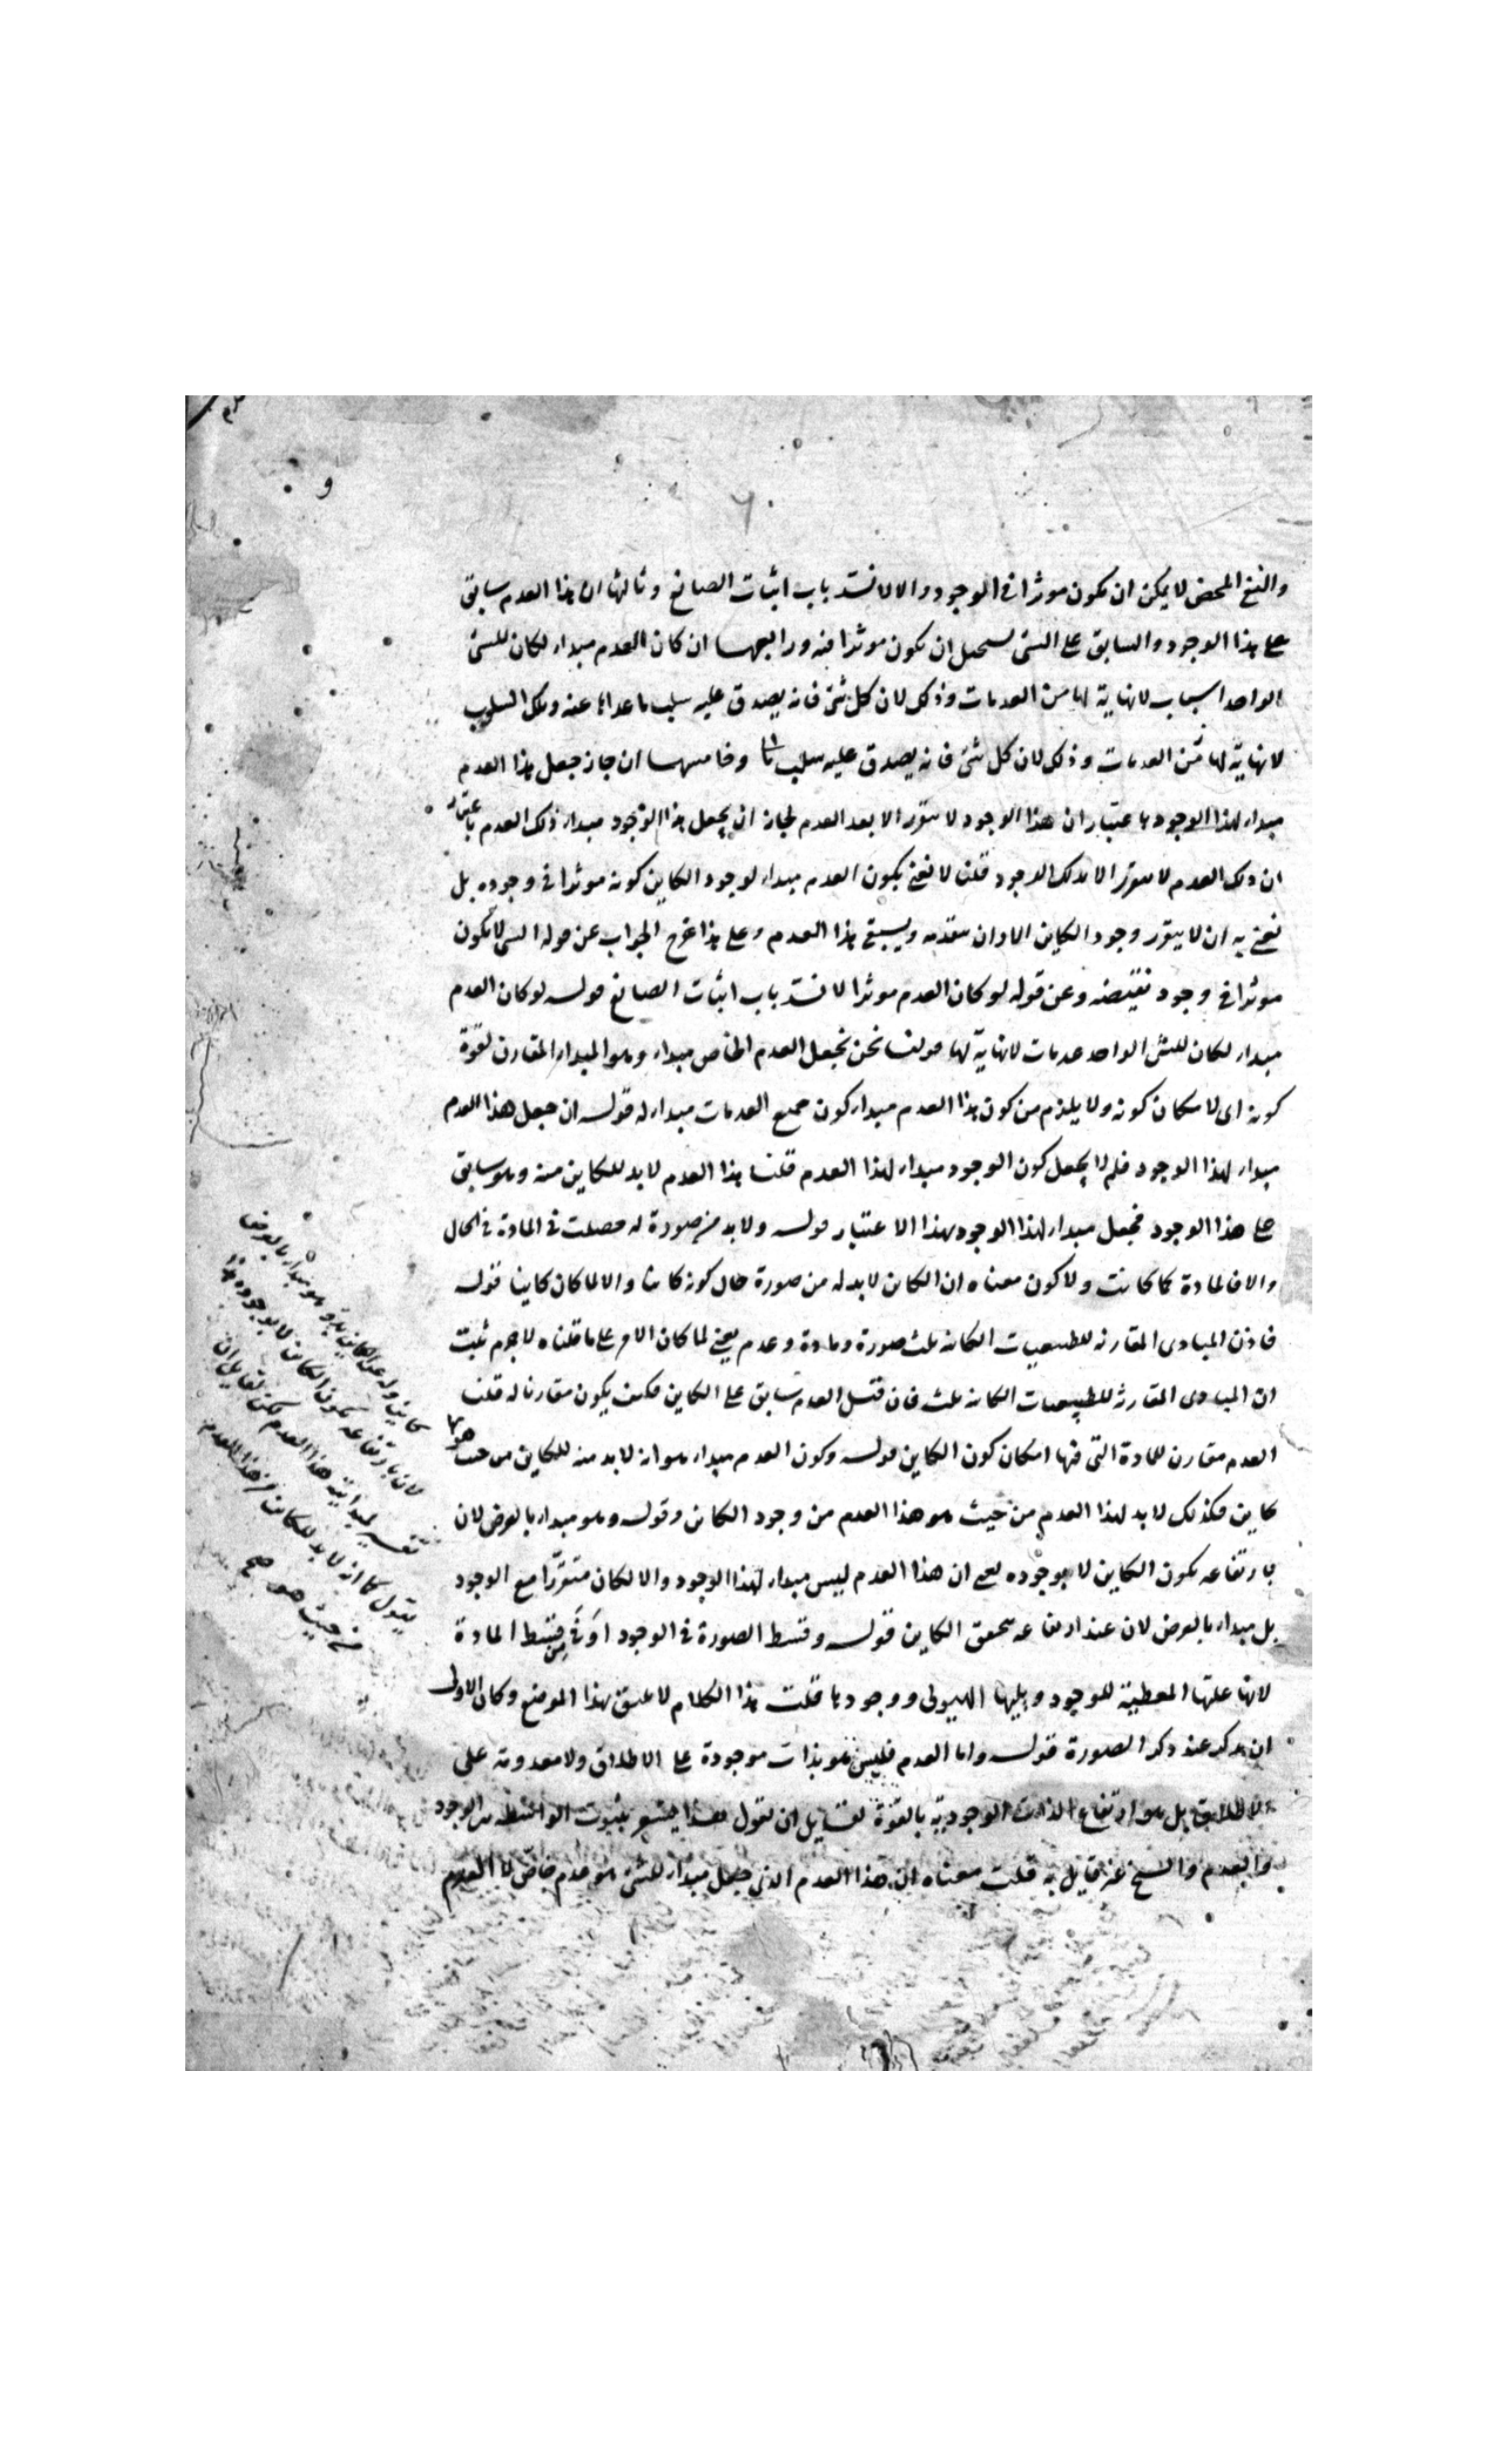 والنفي المحض لا يمكن ان يكون موثرا في الموجود والا لانسد باب اثبات الصانع وثالثها ان هذا العدم سابق
على هذا الوجود والسابق على الشئ يستحيل ان يكون موثرا فيه ورابعها ان كان العدم مبداء لكان للشئ
الواحد اسباب لا نهاية لها من العدمات وذلك لان كل شئ فانه يصدق عليه سلب ما عداه عنه وتلك السلوب
لا نهاية لها من العدمات وذلك لان كل شئ فانه يصدق عليه سلب وخامسها ان جاز جعل هذا العدم
مبداء لهذا الوجود باعتبار ان هذا الوجود لا يتقرر الا بعد العدم لجاز ان يجعل هذا الوجود مبداء ذلك العدم باعتبار
ان ذلك العدم لا يتقرر الا بذلك الوجود قلنا لا نعني بكون العدم مبداء لوجود الكاين كونه موثرا في وجوده بل
نعني به ان لا يتقرر وجود الكاين الا وان يتقدمه ويسبقه هذا العدم وعلى هذا خرج الجواب عن قوله الشئ لا يكون
موثرا في وجود نقيضه وعن قوله لو كان العدم موثرا لانسد باب اثبات الصانع قوله لو كان العدم
مبداء لكان للشئ الواحد عدمات لا نهاية لها قولنا نحن نجعل العدم الخاص مبداء وهو المبداء المقارن لقوة
كونه اى لامكان كونه ولا يلزم من كون هذا العدم مبداء كون جميع العدمات مبداء له قوله ان جعل هذا العدم
مبداء لهذا الوجود فلم لا يجعل كون الوجود مبداء لهذا العدم قلنا هذا العدم لا بد للكاين منه وهو سابق
على هذا الوجود فجعل مبداء لهذا الوجود بهذا الاعتبار قوله ولا بد من صورة له حصلت في المادة في الحال
والا فالمادة كما كانت ولا كون معناه ان الكاين لا بد له من صورة حال كونه كاينا والا لما كان كاينا قوله
فاذن المبادى المقارنه للطبيعيات الكاينه ثلث صورة ومادة وعدم يعني لما كان الامر على ما قلناه لا جرم ثبت
ان المبادى المقارنة للطبيعيات الكاينه ثلث فان قيل العدم سابق على الكاين فكيف يكون مقارنا له قلنا
العدم مقارن للمادة التى فيها امكان كون الكاين قوله وكون العدم مبداء هو انه لا بد منه للكاين من حيث هو
كاين فكذلك لا بد لهذا العدم من حيث هو هذا العدم من وجود الكاين وقوله وهو مبداء بالعرض لان
بارتفاعه يكون الكاين لا بوجوده يعني ان هذا العدم ليس مبداء لهذا الوجود والا لكان متقررا مع الوجود
بل مبداء بالعرض لان عند ارتفاعه يتحقق الكاين قوله وقسط الصورة في الوجود اوفى من قسط المادة
لانها علتها المعطية للوجود ويليها الهيولى ووجودها قلت هذا الكلام لا يليق بهذا الموضع وكان الاولى
ان يذكر عند ذكر الصورة قوله واما العدم فليس هو بذات موجودة على الاطلاق ولا معدومة على
الاطلاق بل هو ارتفاع الذات الوجودية بالقوة لقايل ان يقول هذا يشعر بثبوت الواسطة بين الوجود
والعدم والشيخ غير قايل به قلت معناه ان هذا العدم الذي جعل مبداء للشئ هو عدم خاص لا العدم
لان بارتفاعه يكون الكاين لا بوجوده
يقول كما انه لا بد للكاين من هذا العدم
من حيث هو صح